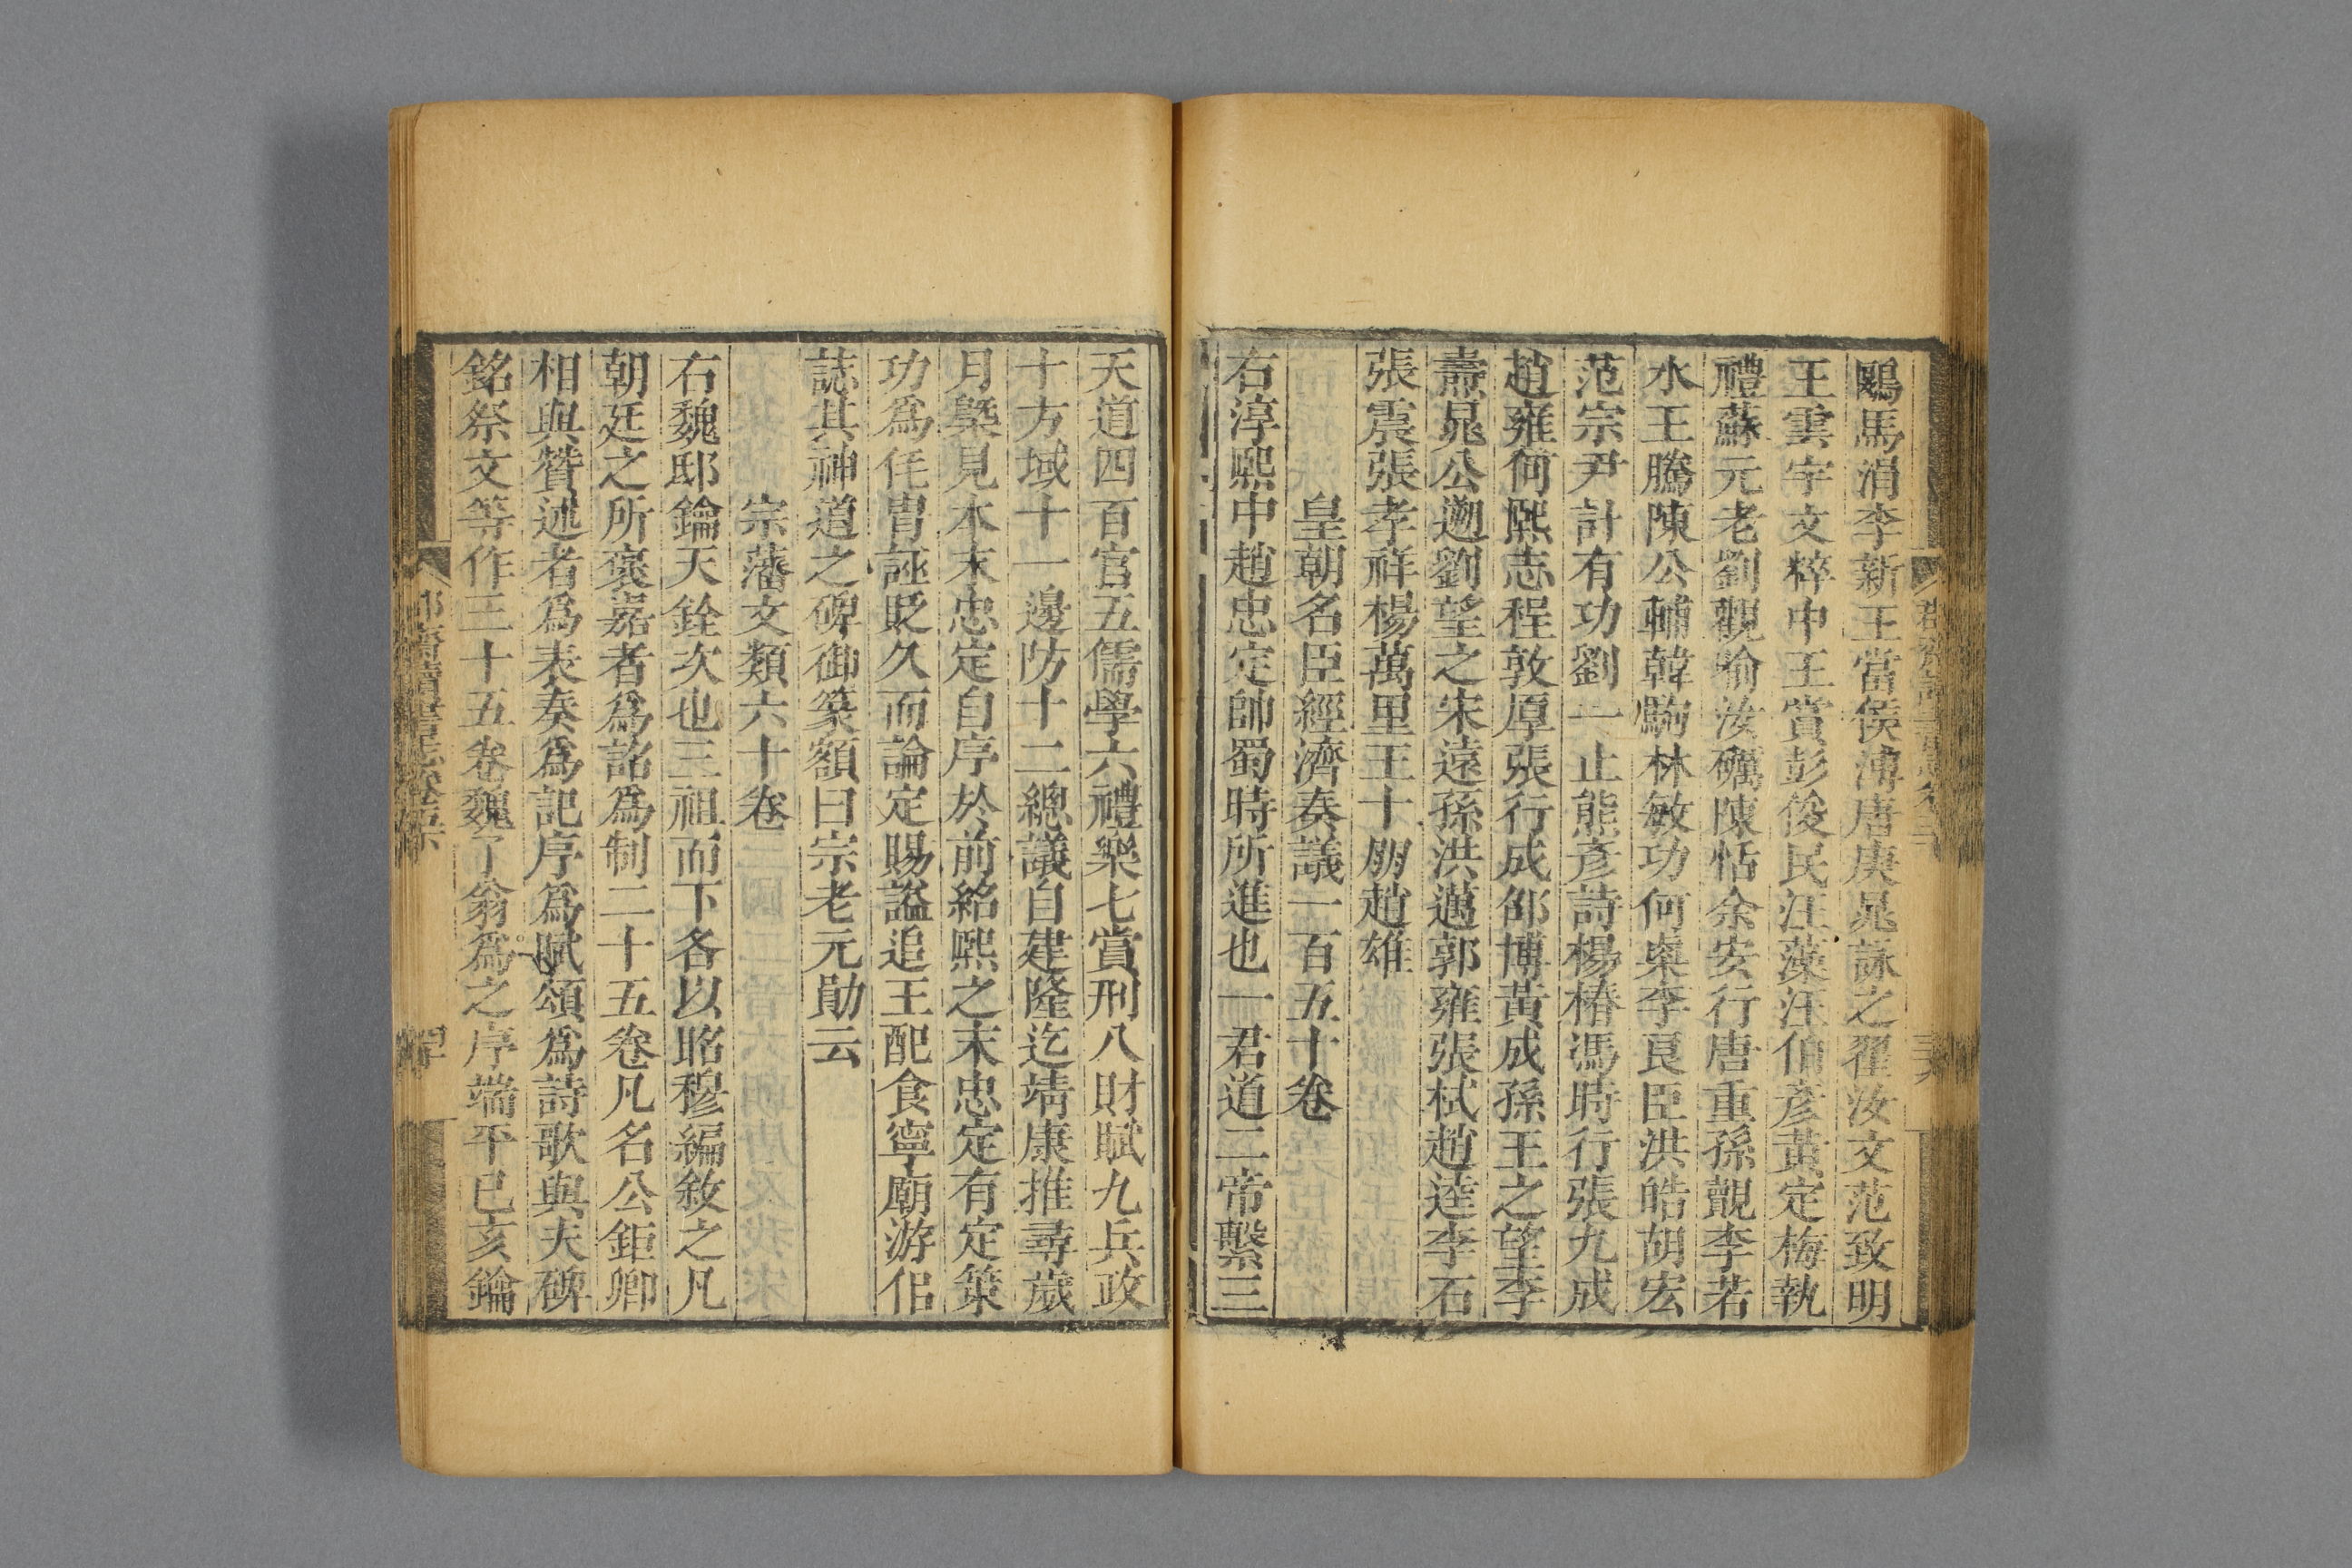 鷗馬涓李新王當侯溥唐庚晁詠之翟汝文范致明
王雲宇文粹中王賞彭俊民汪藻汪伯彥黃定梅執
禮蘇元老劉觀喻汝礪陳恬余安行唐重孫覿李若
水王騰陳公輔韓駒林敏功何㮚李良臣洪皓胡宏
范宗尹計有功劉一止熊彥詩楊椿馮時行張九成
趙雍何熙志程敦厚張行成邵博黃成孫王之望李
燾晁公遡劉望之宋遠孫洪邁郭雍張栻趙逵李石
張震張孝祥楊萬里王十朋趙雄
皇朝名臣經濟奏議一百五十卷
右淳熙中趙忠定帥蜀時所進也一君道二帝繫三
天道四百官五儒學六禮樂七賞刑八財賦九兵政
十方域十一邊防十二總議自建隆迄靖康推尋歲
月槩見本末忠定自序於前紹熙之末忠定有定策
功爲侂胄誣貶久而論定賜謚追王配食寧廟游佀
誌其神道之碑御篆額曰宗老元勛云
宗藩文類六十卷
右魏邸鑰天銓次也三祖而下各以昭穆編敘之凡
朝廷之所褒嘉者爲詔爲制二十五卷凡名公鉅卿
相與贊述者爲表奏爲記序爲賦頌爲詩歌與夫碑
銘祭文等作三十五卷魏了翁爲之序端平已亥鑰